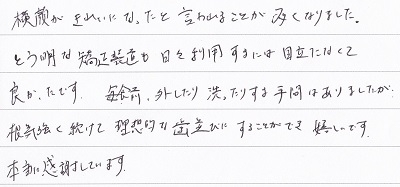 横顔がきれいになったと言われることが多くなりました。
とう明な矯正装置も日々利用するには目立たなくて
良かったです。毎食前、外したり洗ったりする手間はありましたが、
根気強く続けて理想的な歯並びにすることができ嬉しいです。
本当に感謝しています。